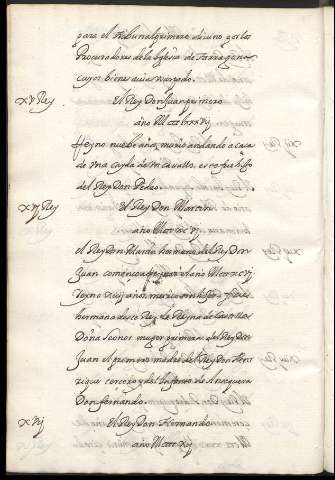 para el tribunal primero divino por los
Procuradores de la Iglesia de Tarragona
cuyos bienes auia usurpado.
xv Rey El Rey Don Juan primero
año Mccclxxxvij
Reyno nuebe años, murio andando a caça
de una cayda de un cavallo, este fue hijo
del Rey Don Pedro.
xvj Rey El Rey Don Martin
año Mcccxcvj
el Rey Don Martin hermano del Rey Don
Juan començo a reynar el año Mcccxcvj
reyno xiiij años, murio sin hijos y fue
hermana deste Rey la Reyna de Castilla
Doña Leonor muger primera del Rey Don
Juan el primero madre del Rey Don Hen
rique tercero y del Infante de Antequera
Don fernando.
xvij El Rey Don Hernando
año Mccccxij